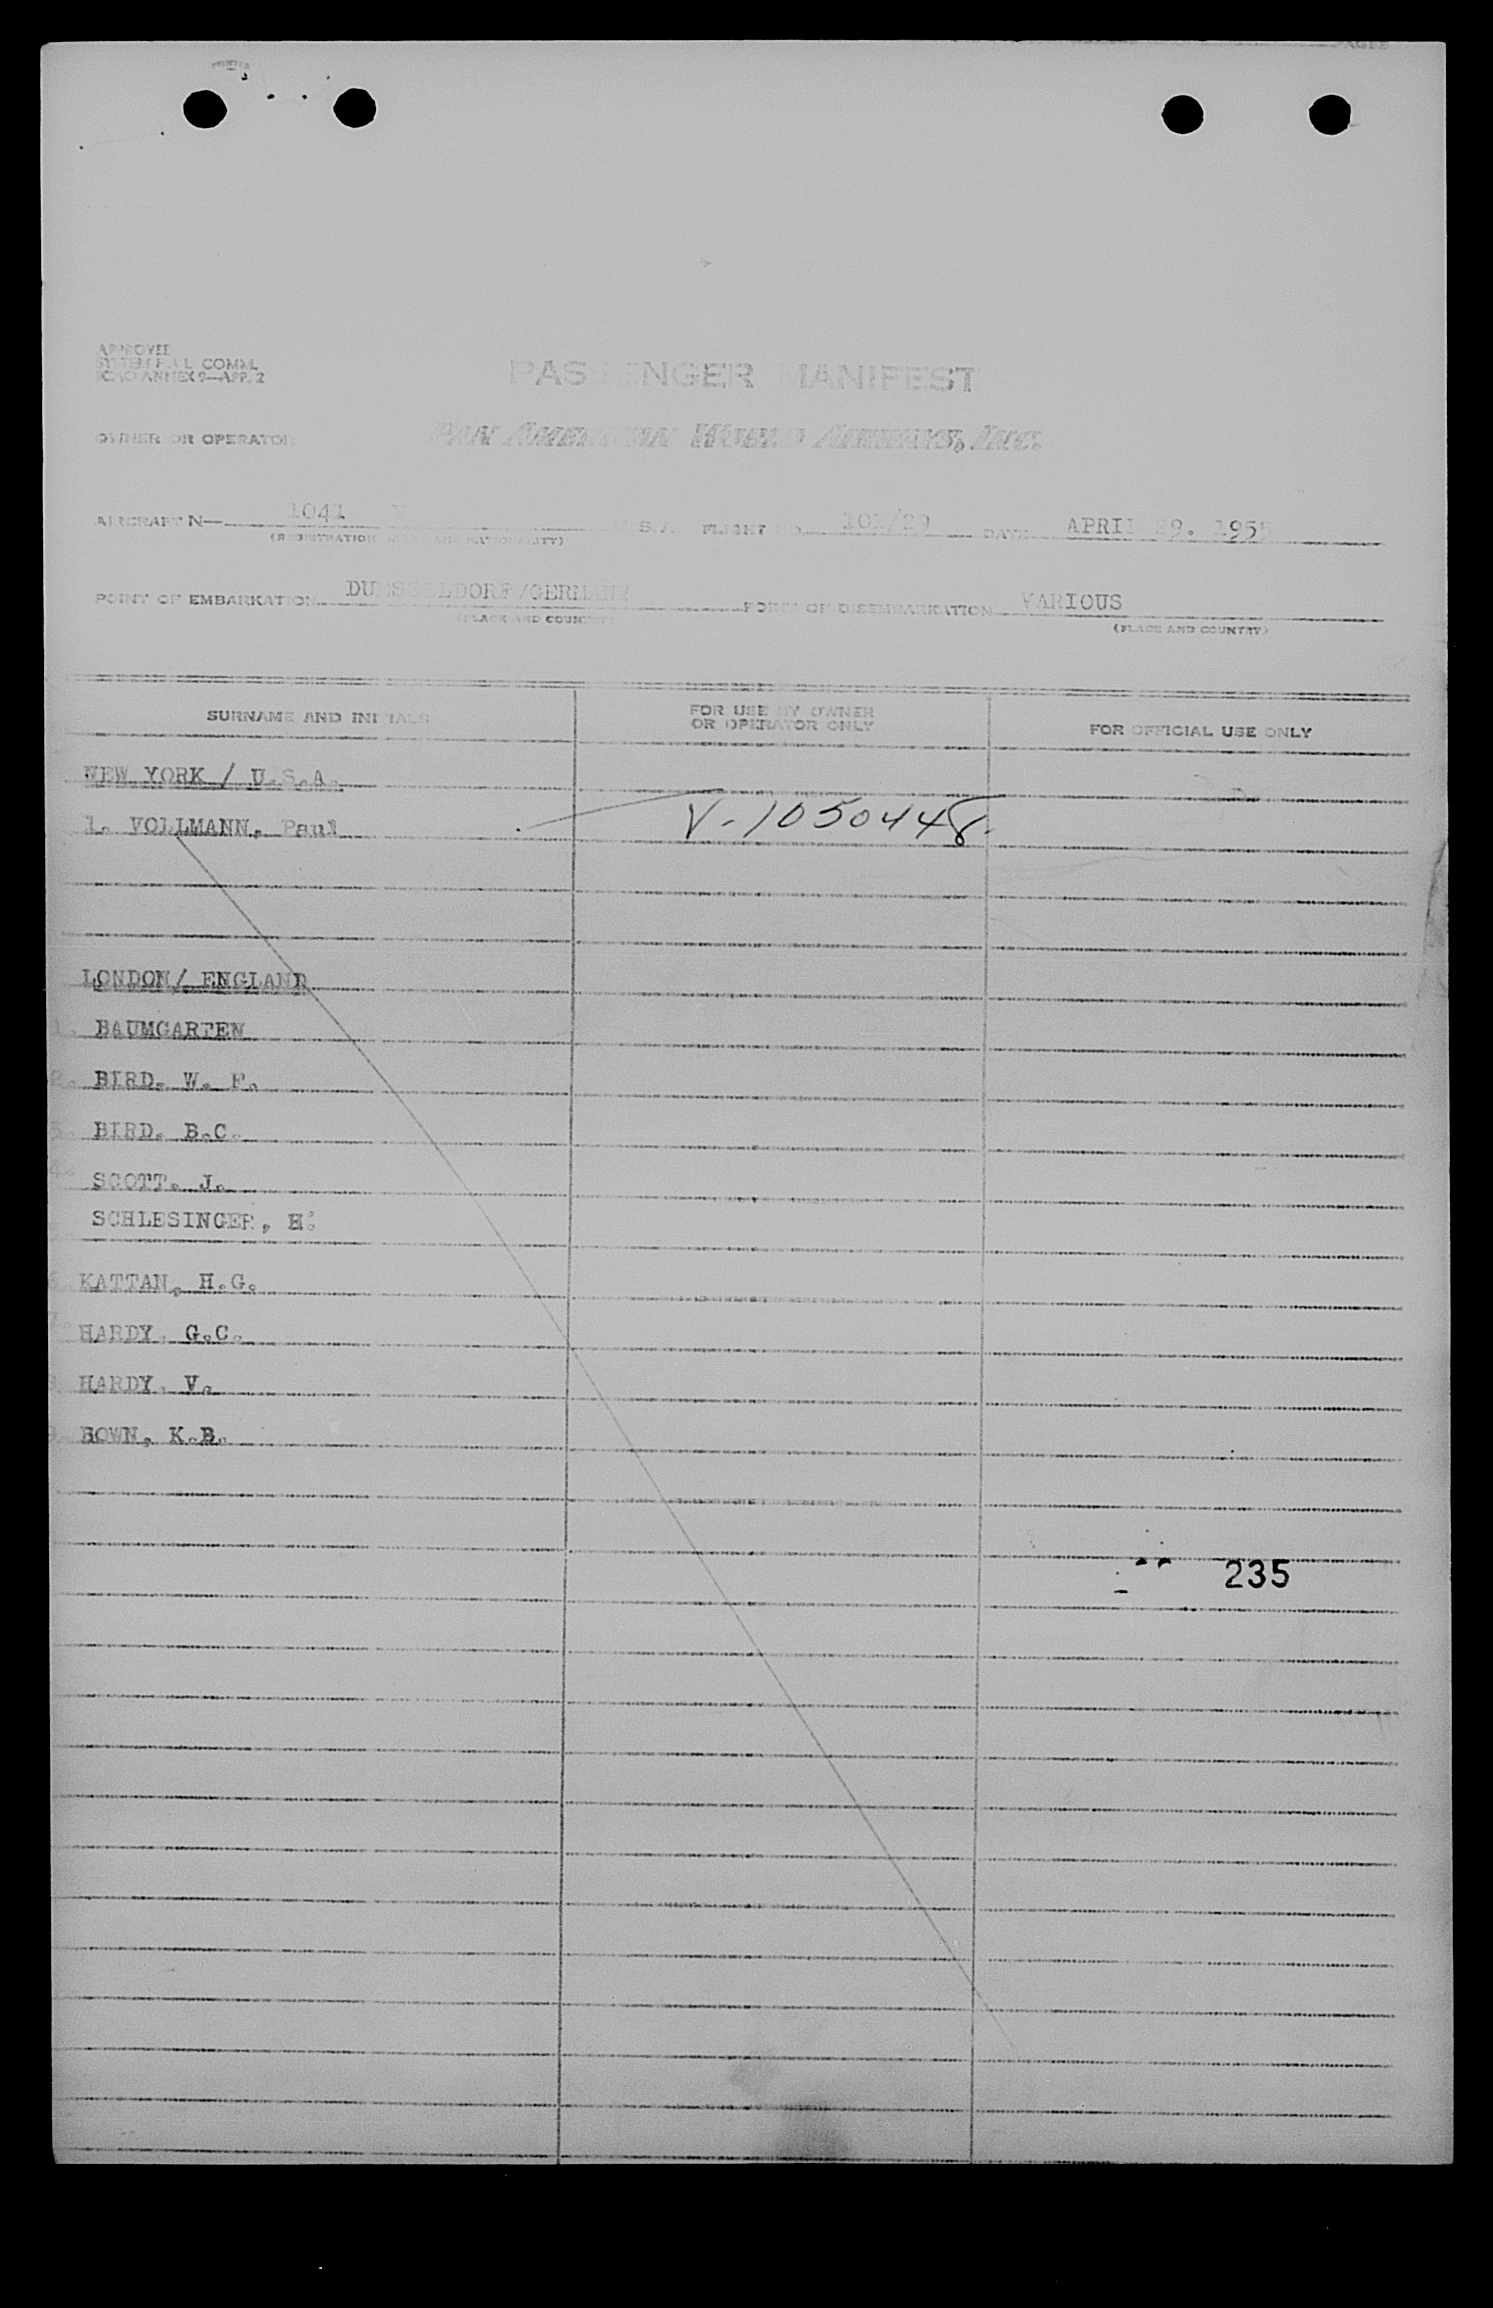 PAGES
APPROVED
SYSTEM F.& L. COMM.
ICAO ANNEX 9—APP. 2
PASSENGER MANIFEST
OWNER OR OPERATOR
PAN AMERICAN WORLD AIRWAYS, INC.
AIRCRAFT N— 1041 V U.S.A. FLIGHT NO. 101/29 DATE APRIL 29. 1955
(REGISTRATION MARKS AND NATIONALITY)
POINT OF EMBARKATION DUESSELDORF/GERMANY POINT OF DISEMBARKATION VARIOUS
(PLACE AND COUNTRY) (PLACE AND COUNTRY)
SURNAME AND INITIALS FOR USE BY OWNER OR OPERATOR ONLY FOR OFFICIAL USE ONLY
NEW YORK / U.S.A.
1. VOLLMANN, Paul V-1050448
LONDON/ ENGLAND
1. BAUMGARTEN
2. BIRD. W. F.
3. BIRD. B.C.
4. SCOTT. J.
SCHLESINGER, H.
KATTAN, H.G.
7. HARDY, G.C.
HARDY, V.
9. BOWN, K.B.
235